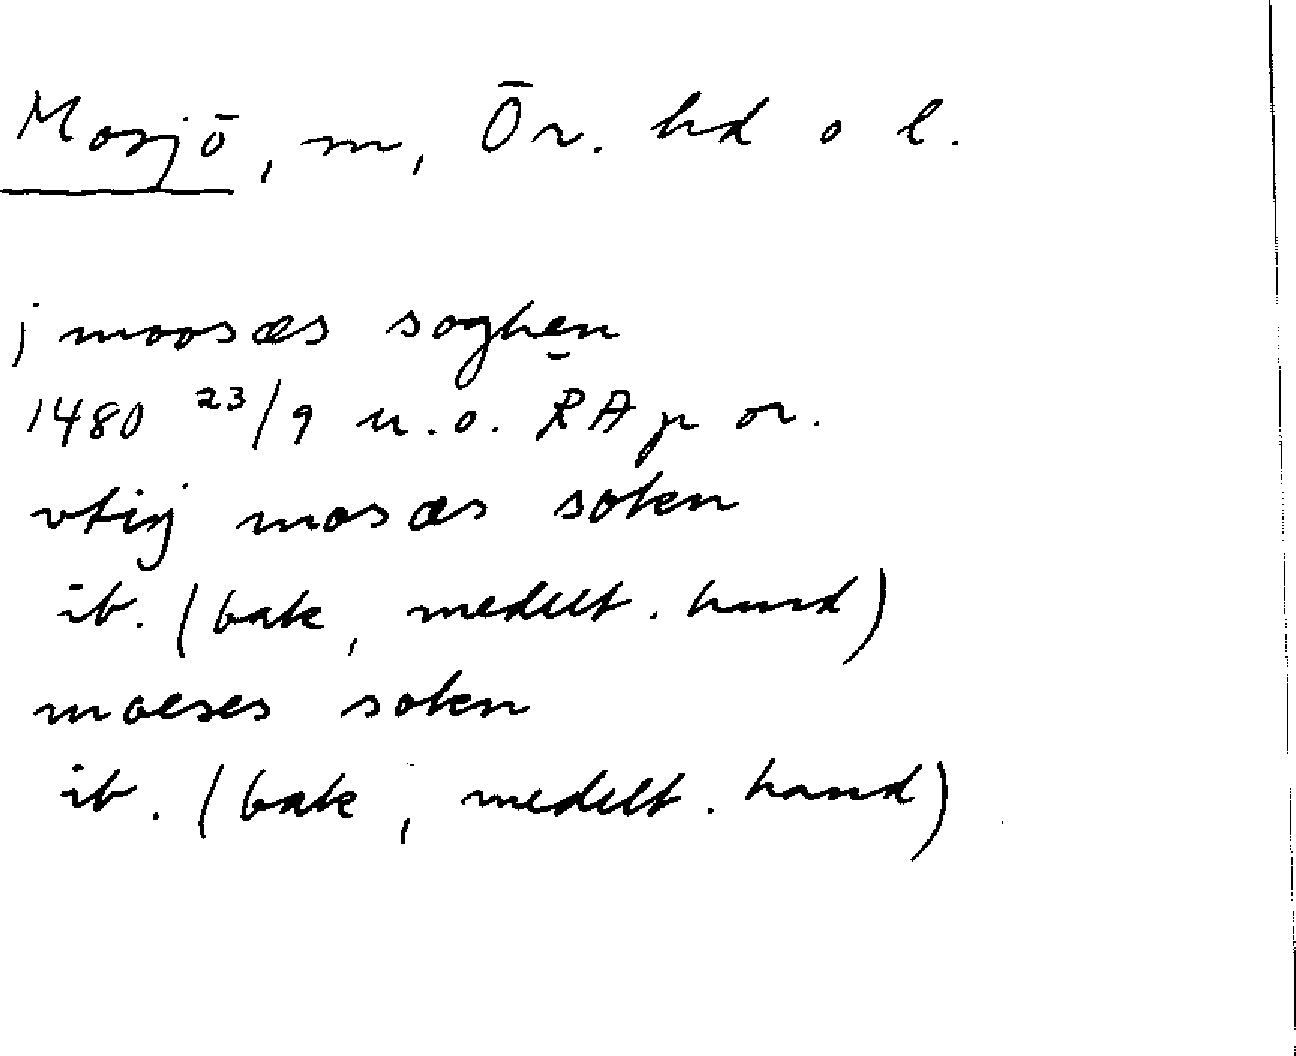 Mosjö, m, Ör. hd o l.
j moosæs soghen
1480 23/9 u.o. RAp or.
vtiij mosæs soken
ib. (bak, medelt. hand)
moeses soken
ib. (bak, medelt. hand)